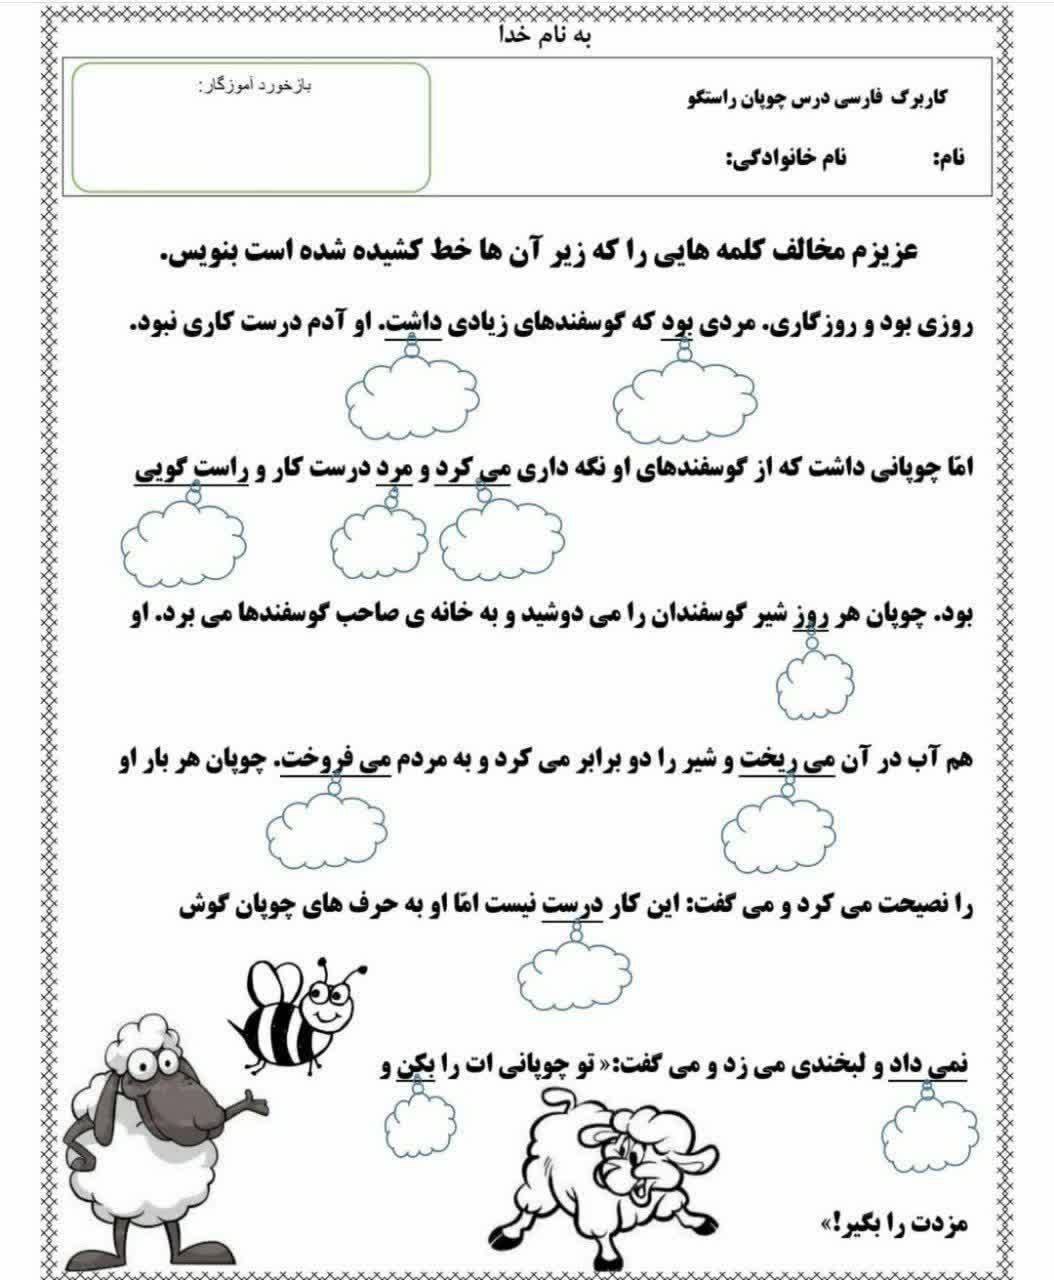 به نام خدا
بازخورد آموزگار:
کاربرگ فارسی درس چوپان راستگو
نام: نام خانوادگی:
عزیزم مخالف کلمه هایی را که زیر آن ها خط کشیده شده است بنویس.
روزی بود و روزگاری. مردی بود که گوسفندهای زیادی داشت. او آدم درست کاری نبود.
امّا چوپانی داشت که از گوسفندهای او نگه داری می کرد و مرد درست کار و راست گویی
بود. چوپان هر روز شیر گوسفندان را می دوشید و به خانه ی صاحب گوسفندها می برد. او
هم آب در آن می ریخت و شیر را دو برابر می کرد و به مردم می فروخت. چوپان هر بار او
را نصیحت می کرد و می گفت: این کار درست نیست امّا او به حرف های چوپان گوش
نمی داد و لبخندی می زد و می گفت:« تو چوپانی ات را بکن و
مزدت را بگیر!»